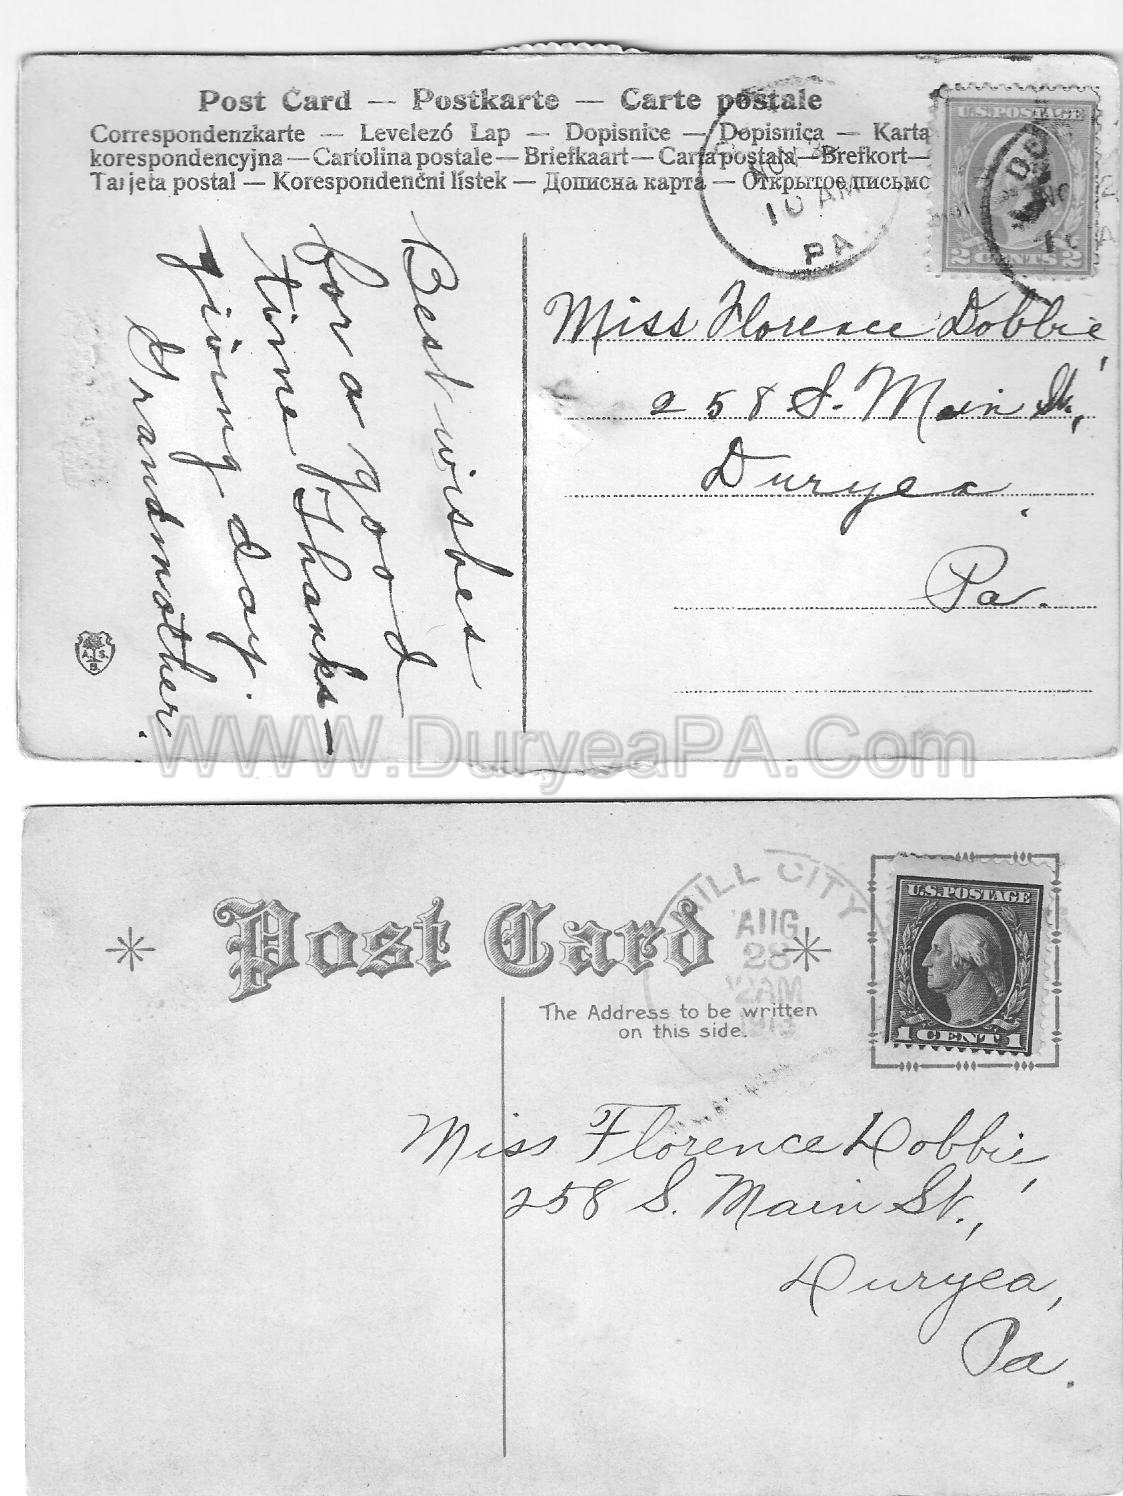 Post Card — Postkarte — Carte postale
Correspondenzkarte — Levelező Lap — Dopisnice — Dopisnica — Karta
korespondencyjna — Cartolina postale — Briefkaart — Carta postala — Brefkort —
Tarjeta postal — Korespondenčni lístek — Дописна карта — Открытое письмо
NOV
10 AM
PA
U.S. POSTAGE
2 CENTS 2
Best wishes
for a good
time Thanks-
giving day.
Grandmother.
Miss Florence Dobbie,
258 S. Main St.,
Duryea,
Pa.
A. S.
B.
WWW.DuryeaPA.Com
Post Card
The Address to be written
on this side.
MILL CITY
AUG
28
12AM
1913
U.S. POSTAGE
1 CENT 1
Miss Florence Dobbie,
258 S. Main St.,
Duryea,
Pa.